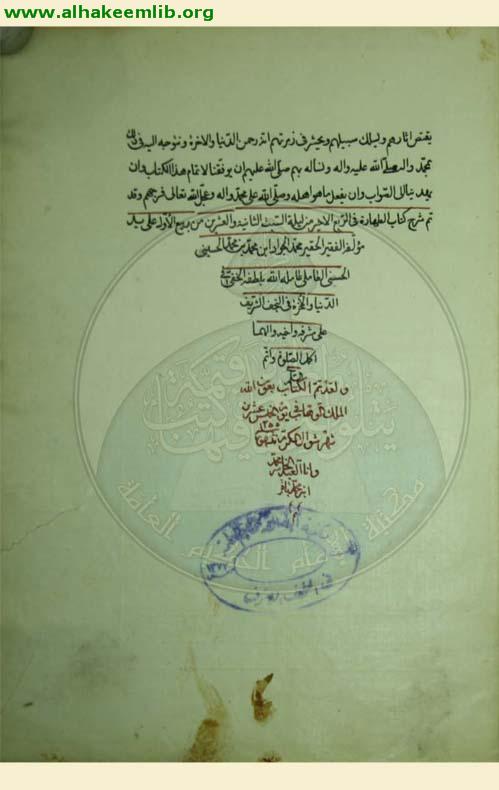 www.alhakeemlib.org
يقتص اثارهم ويسلك سبيلهم ويحشر في زمرتهم انه رحمن الدنيا والاخرة ونتوجه اليه في ذلك
بمحمد واله صلى الله عليه واله ونساله بهم صلى الله عليهم ان يوفقنا لاتمام هذا الكتاب وان
يهدينا الى الصواب وان يفعل ما هو اهله وصلى الله على محمد واله وعجل الله تعالى فرجهم وقد
تم شرح كتاب الطهارة في الربع الاخير من ليلة السبت الثانية والعشرين من ربيع الاول على يد
مؤلفه الفقير الحقير محمد الجواد ابن محمد بن محمد الحسيني
الحسني العاملي عامله الله بلطفه الخفي في
الدنيا والاخرة في النجف الشريف
على مشرفه واخيه والهما
اكمل الصلوة واتم
ولقد تم الكتاب بعون الله
الملك الوهاب في يوم الخامس عشر من
شهر شوال المكرم ١٢٥٥
وانا العبد محمد
ابن محمد باقر
مكتبة الامام الحكيم العامة